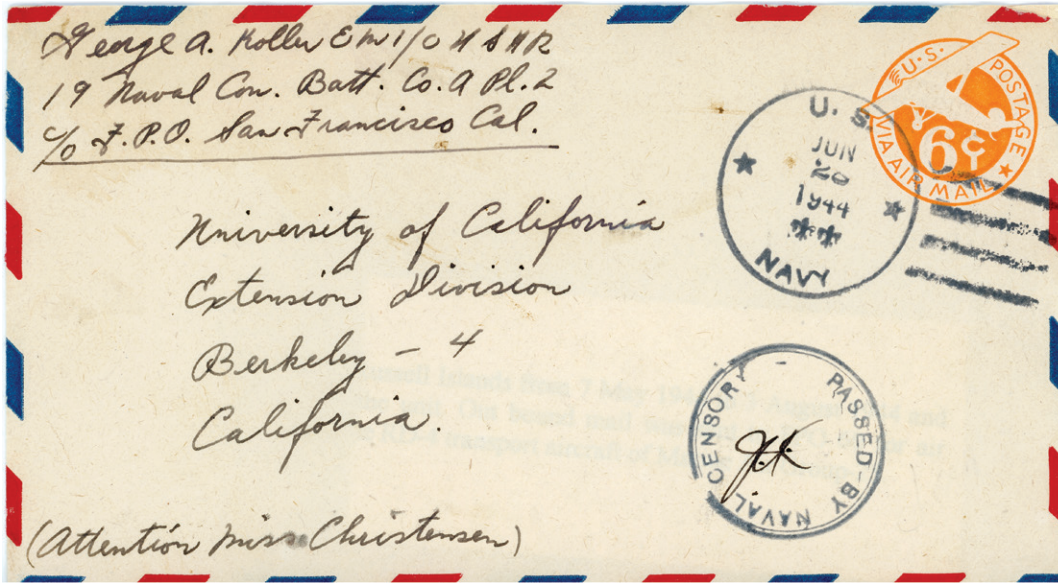 George A. Koller EM 1/c USNR
19 Naval Con. Batt. Co. A Pl. 2
c/o F.P.O. San Francisco Cal.
U.S. POSTAGE
VIA AIR MAIL
6¢
U. S.
JUN
1944
NAVY
University of California
Extension Division
Berkeley - 4
California.
PASSED BY NAVAL CENSOR
(Attention Miss Christensen)